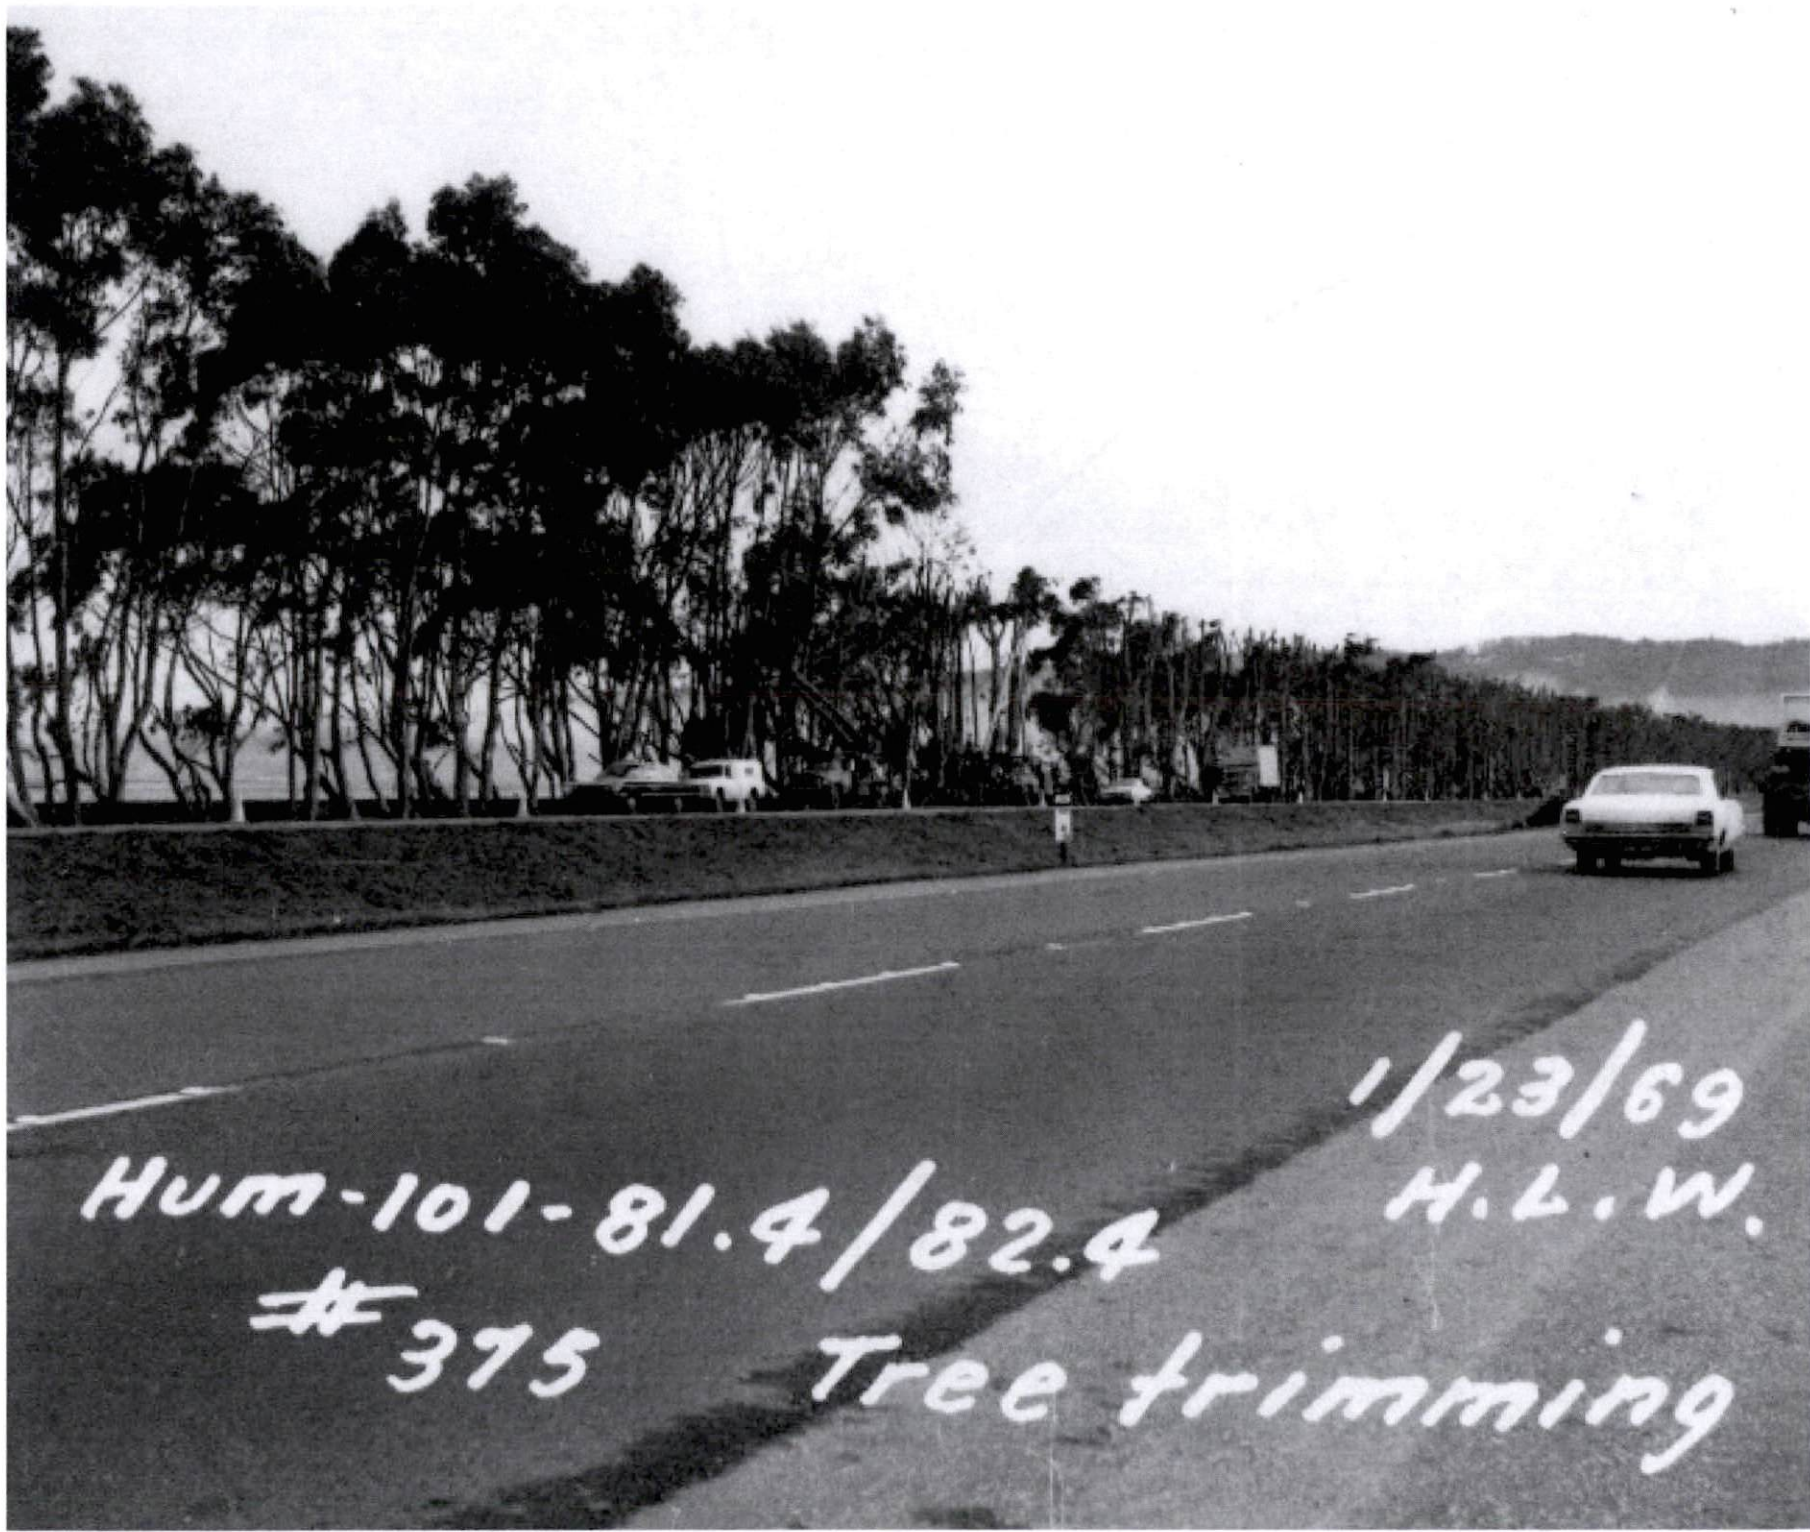 1/23/69
H.L.W.
Hum-101-81.4/82.4
#375
Tree trimming